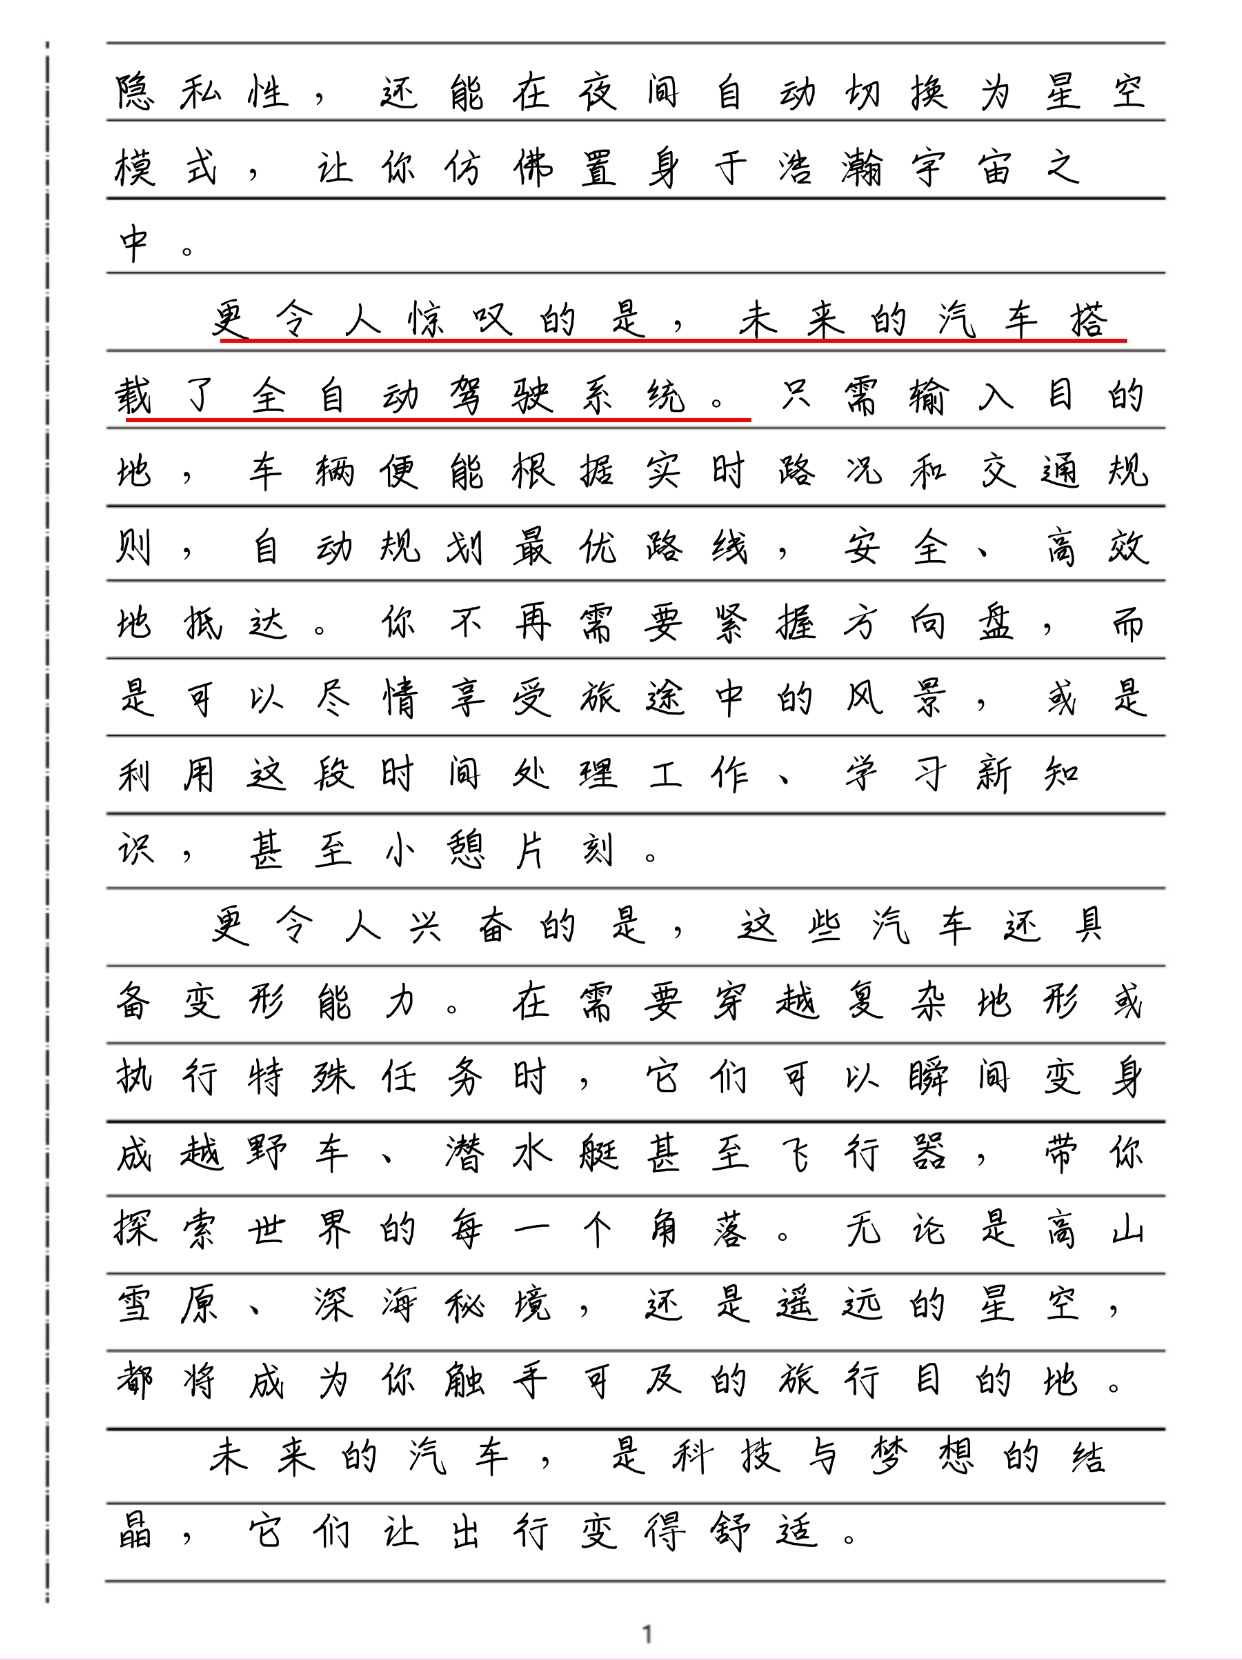 隐私性，还能在夜间自动切换为星空
模式，让你仿佛置身于浩瀚宇宙之
中。
更令人惊叹的是，未来的汽车搭
载了全自动驾驶系统。只需输入目的
地，车辆便能根据实时路况和交通规
则，自动规划最优路线，安全、高效
地抵达。你不再需要紧握方向盘，而
是可以尽情享受旅途中的风景，或是
利用这段时间处理工作、学习新知
识，甚至小憩片刻。
更令人兴奋的是，这些汽车还具
备变形能力。在需要穿越复杂地形或
执行特殊任务时，它们可以瞬间变身
成越野车、潜水艇甚至飞行器，带你
探索世界的每一个角落。无论是高山
雪原、深海秘境，还是遥远的星空，
都将成为你触手可及的旅行目的地。
未来的汽车，是科技与梦想的结
晶，它们让出行变得舒适。
1